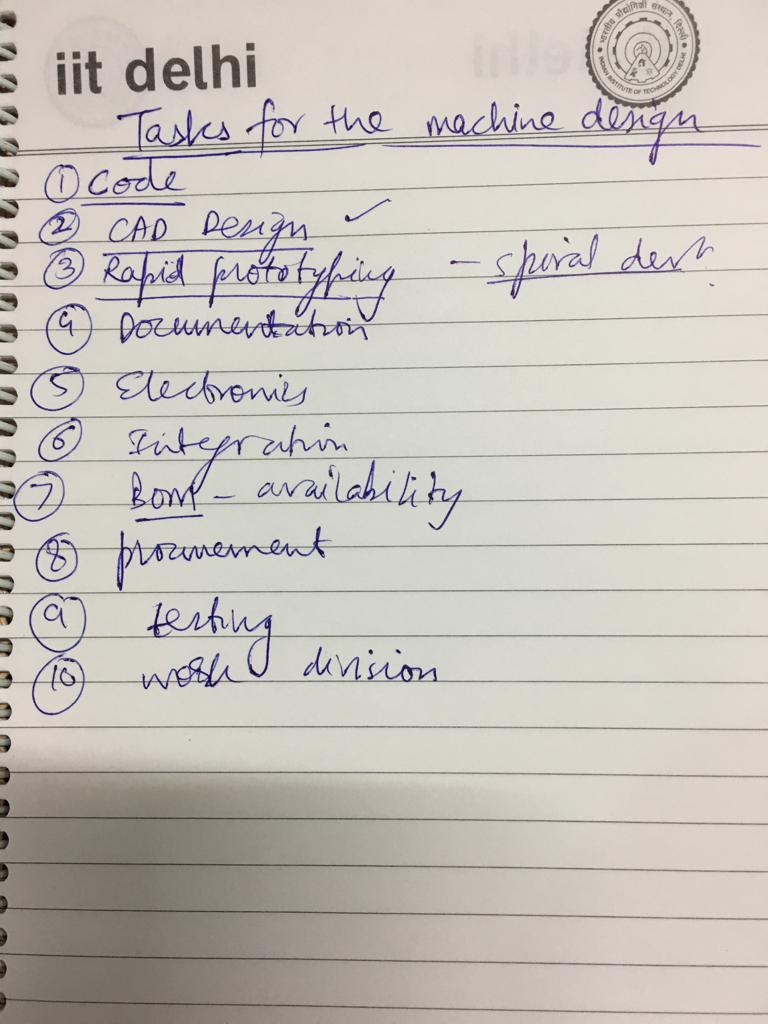 iit delhi
भारतीय प्रौद्योगिकी संस्थान दिल्ली
INDIAN INSTITUTE OF TECHNOLOGY DELHI
Tasks for the machine design
① Code
② CAD Design ✓
③ Rapid prototyping - spiral
④ Documentation
⑤ Electronics
⑥ Integration
⑦ BOM - availability
⑧ procurement
⑨ testing
⑩ work division